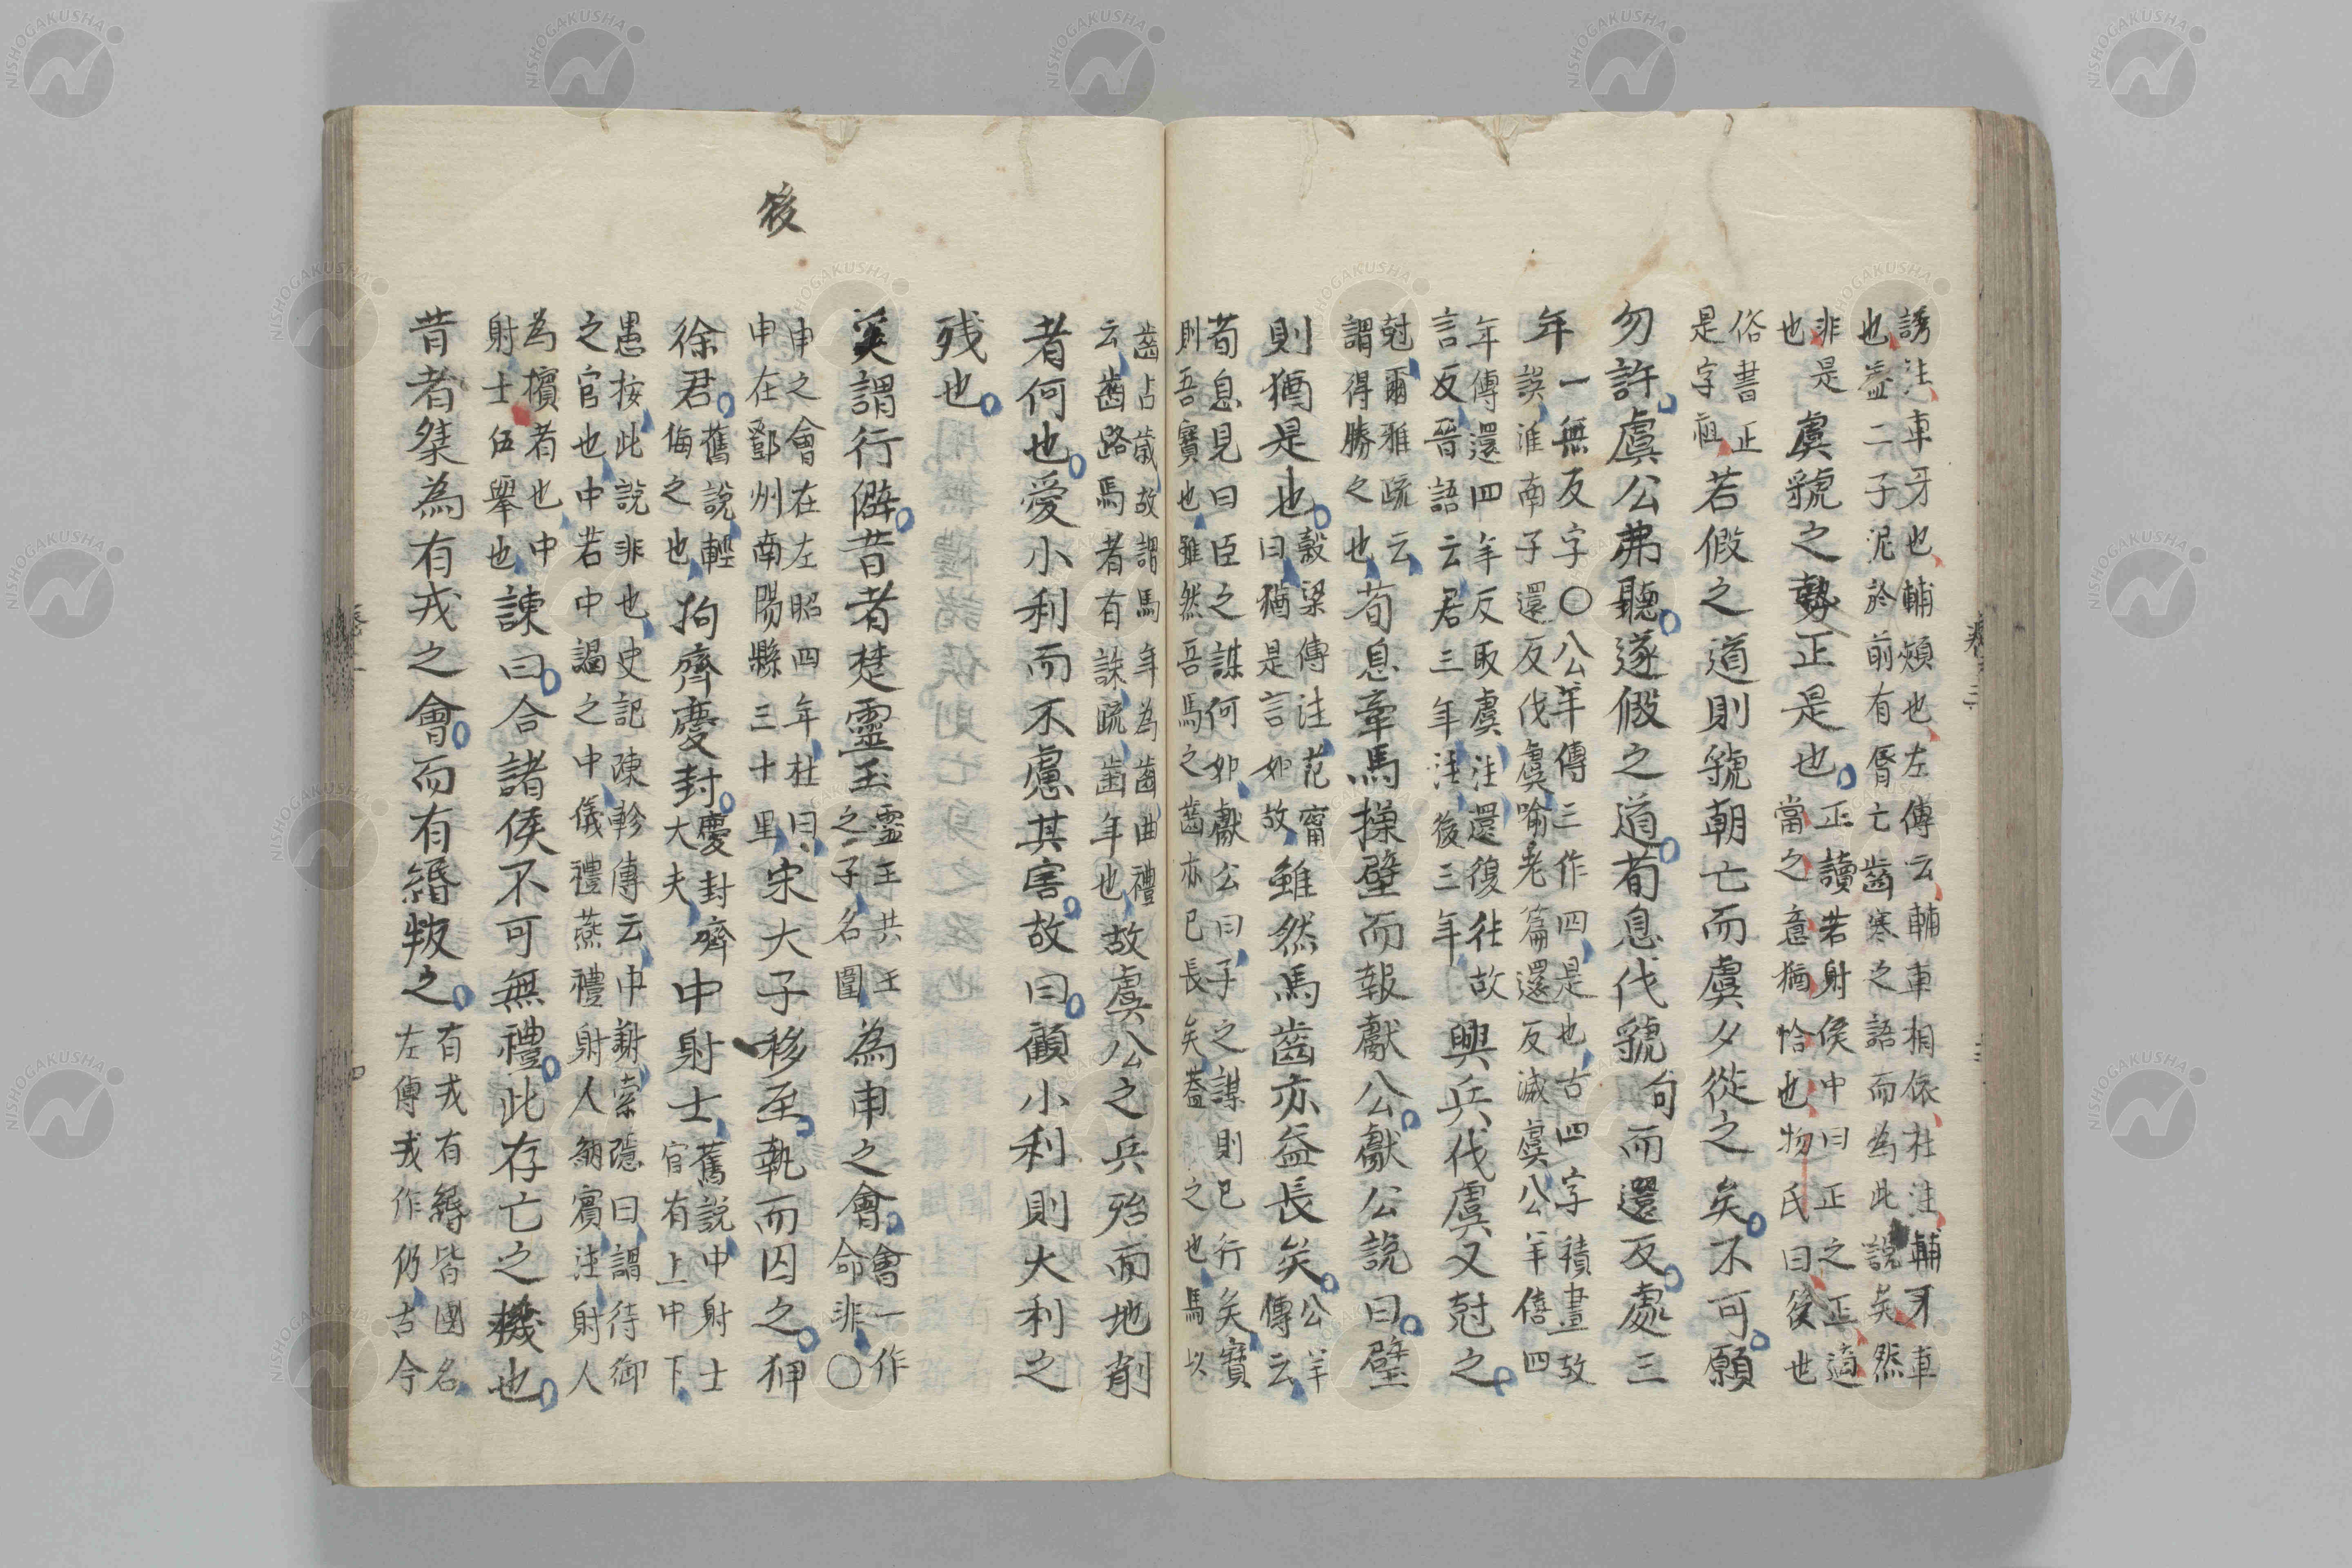 誘注車牙也輔頰也左傳云輔車相依杜注輔牙車
也盖二子泥於前有唇亡齒寒之語而為此説矣然
非是
也
虞虢之勢正是也
正讀若射侯中曰正之正適
當之意猶恰也物氏曰後世
俗書正
是字
若假之道則虢朝亡而虞夕從之矣不可願
勿許虞公弗聽遂假之道荀息伐虢句而還反處三
年
一無反字〇公羊傳三作四是也古四字積畫故
誤淮南子還反伐虞喻老篇還反滅虞公羊僖四
年傳還四年反取虞注還復往故
言反晉語云居三年注後三年
興兵伐虞又尅之
尅爾雅疏云
謂得勝之也
荀息牽馬操璧而報獻公獻公説曰璧
則猶是也
穀梁傳注范甯
曰猶是言如故
雖然馬齒亦益長矣
公羊
傳云
荀息見曰臣之謀何如獻公曰子之謀則已行矣寶
則吾寶也雖然吾馬之齒亦已長矣葢之也馬以
齒占歳故謂馬年為齒曲禮
云齒路馬者有誅疏齒年也
故虞公之兵殆而地削
者何也愛小利而不慮其害故曰顧小利則大利之
残也
後
奚謂行僻昔者楚靈王
靈王共王
之子名圍
為申之會
會一作
命非〇
申之會在左昭四年杜曰
申在鄧州南陽縣三十里
宋大子移至執而囚之狎
徐君
舊說輕
侮之也
拘齊慶封
慶封齊
大夫
中射士
舊說中射士
官有上中下
愚按此説非也史記陳軫傳云中謝索隠曰謂待御
之官也中若中謁之中儀禮燕禮射人納賓注射人
為擯者也中
射士伍舉也
諫曰合諸侯不可無禮此存亡之機也
昔者桀為有戎之會而有緡叛之
有戎有緡皆國名
左傳戎作仍古今